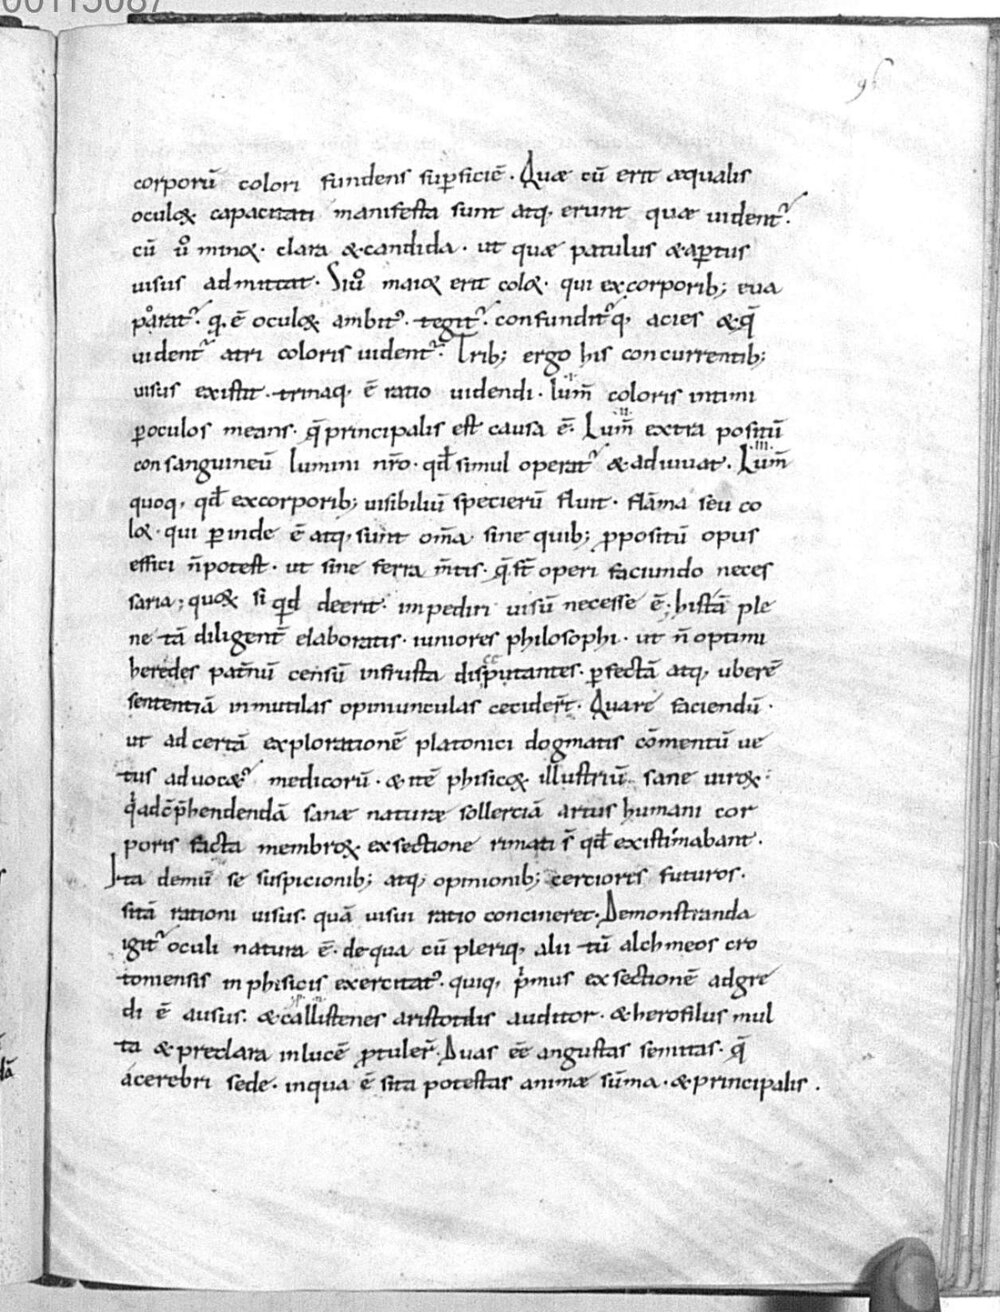 00115087
96
corporū colori fundens suꝑficiē. Quæ cū erit æqualis
oculoꝝ capacitati manifesta sunt atq; erunt quæ uident᷑.
cū ů minoꝝ. clara & candida. ut quæ patulus & aꝑtus
uisus admittat. Siů maioꝝ erit coloꝝ. qui ex corporib; eua
poͣrat᷑. q. ē oculoꝝ ambit᷑. tegit᷑. confundit᷑q, acies & q̄
uident᷑ atri coloris uident᷑. Trib; ergo his concurrentib;
uisus existit. trinaq, ē ratio uidendi. lum̄ coloris intimi
ꝑ oculos means. q̄ principalis est causa ē. Lum̄ extra positū
consanguineū lumini nr̄o. qd̄ simul operat᷑ & adiuuat. Lum̄
quoq, qd̄ ex corporib; uisibiliū specierū fluit. flāma seu co
loꝝ. qui ꝑinde ē atq, sunt om̄a sine quib; ꝓpositū opus
effici n̄ potest. ut sine ferra m̄tis. q̄ st̄ operi faciundo neces
saria; quoꝝ si qd deerit. impediri uisū necesse ē; hīstā ple
ne tā diligent̄ elaboratis. iuniores philosophi. ut n̄ optimi
heredes pat̄nū censū in frusta disputantes. ꝑfectā atq, uberē
sententiā in mutilas opiniunculas cecider̄t. Quare faciendū.
ut ad certā explorationē platonici dogmatis cōmentū ue
tus aduocæ᷑ medicorū. & itē phisicoꝝ. illustriū sane uiroꝝ:
q̇ ad cōp̄hendendā sanæ naturæ sollerciā artus humani cor
poris facta membroꝝ. exsectione rimati s̄ qd̄ existimabant.
Ita demū se suspicionib; atq, opinionib; cerciores futuros.
sitā rationi uisus. quā uisui ratio concineret. Demonstranda
igit᷑ oculi natura ē. de qua cū pleriq, alii tū alchmeos cro
toniensis in phisicis exercitat᷑. quiq, p̍mus exsectionē adgre
di ē ausus. & callistenes aristotilis auditor. & herofilus mul
ta & preclara in lucē ꝓtuler̄. Duas eē angustas semitas. q̄
a cerebri sede. in qua ē sita potestas animæ sūma. & principalis.